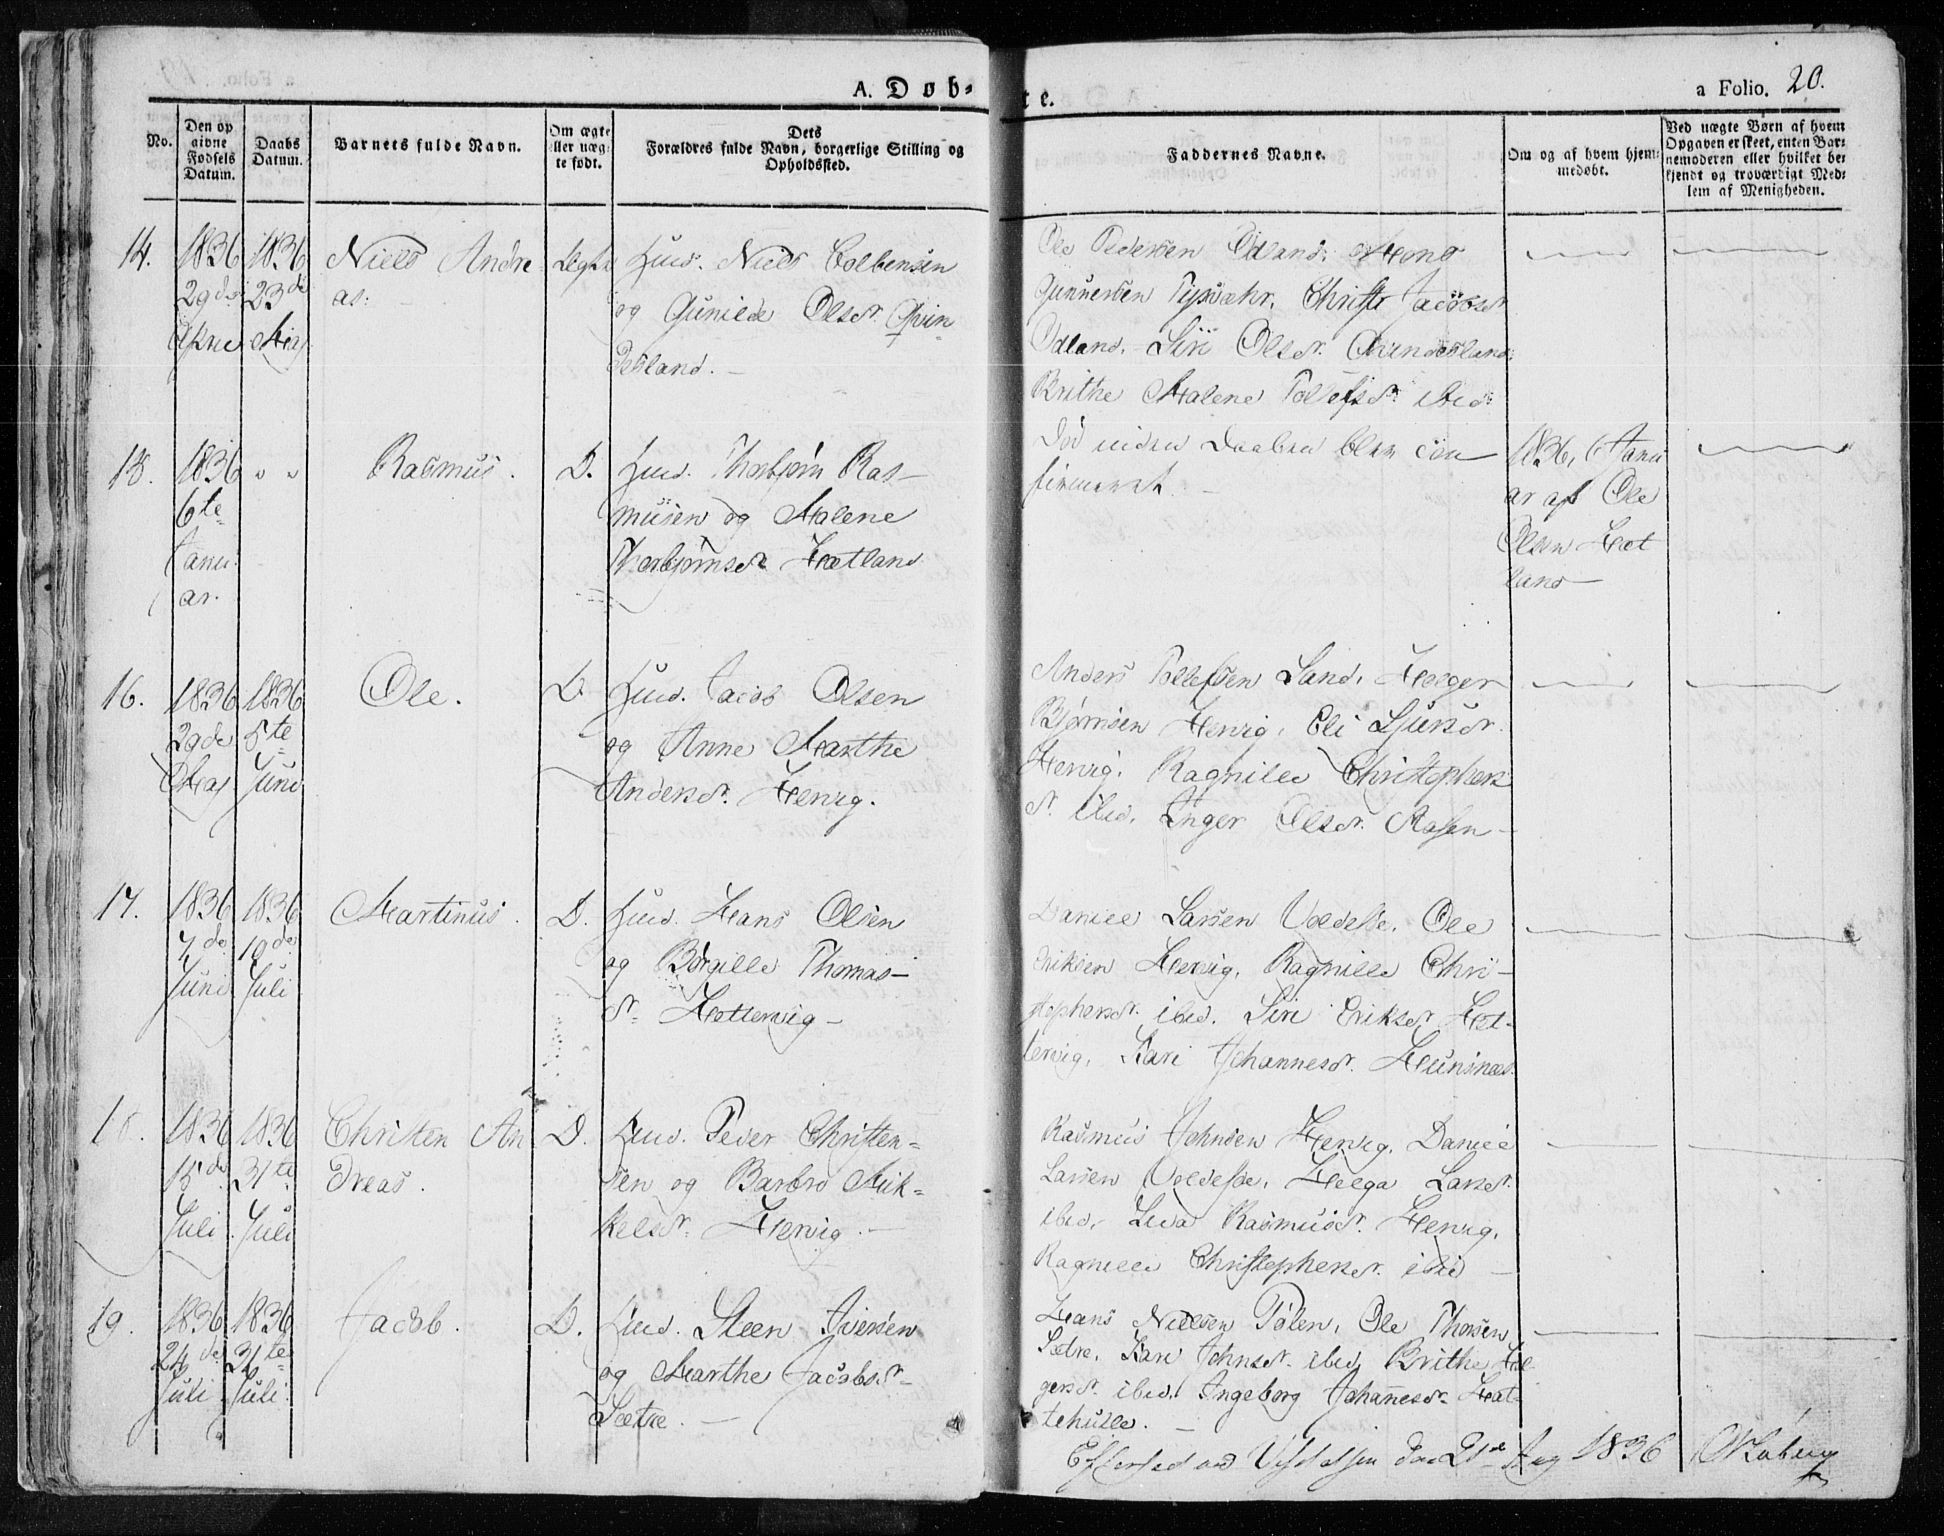 A. Døb-
te.
a Folio. 20.
No.
Den op
givne
Fødsels
Datum.
Daabs
Datum.
Barnets fulde Navn.
Om ægte
eller uæg-
te født.
Dets
Forældres fulde Navn, borgerlige Stilling og
Opholdssted.
Faddernes Navne.
Om og af hvem hjem-
medøbt.
Ved uægte Børn af hvem
Opgaven er skeet, enten Bar-
nemoderen eller hvilket be-
kjendt og troværdigt Med-
lem af Menigheden.
14.
1836
29de
April
1836
23de
May
Niels Andre
as:
Ægte
Huusb. Niels Colbensen
og Gunilde Olsdr. Qvin
desland.
Ole Pedersen Ødland,
Gunnersen Tysvæhr, Christi Jacobsdr.
Ødland, Siri Olsdr. Qvindesland,
Brithe Malene Tollefsdr. ibid:
15.
1836
6te
Janu
ar.
" "
Rasmus.
D.
Huusb. Thorbjørn Ras-
musen og Malene
Thorbjørnsdr. Hetland
Død uden Daaben blev con
firmeret.
1836, 6 Janu
ar af Ole
Olsen Het
land
16.
1836
29de
May
1836
5te
Juni
Ole.
D.
Huusb. Jacob Olsen
og Anne Marthe
Andersdr. Hervig.
Anders Tollefsen Sand, Holger
Bjørnsen Hervig, Eli Sjursdr.
Hervig, Ragnille Christophers
dr. ibid, Inger Olsdr. Aasen
17.
1836
7de
Juni
1836
10de
Juli
Martinus.
D.
Huusb. Hans Olsen
og Børgille Thomas-
dr. Hettervig
Daniel Larsen Voldesse, Ole
Eriksen Hervig, Ragnille Chri-
stophersdr. ibid. Siri Eriksdr. Het-
tervig, Kari Johannesdr. Heunsnæs.
18.
1836
15de
Juli
1836
31te
Juli
Christen An
dreas.
D.
Huusb. Peder Christen-
sen og Barbro Mik-
kelsdr. Hervig.
Rasmus Johnsen Hervig, Daniel
Larsen Voldesse, Helga Larsdr.
ibid, Rasmusdr. Hervig,
Ragnille Christophersdr. ibid
19.
1836
24de
Juli
1836
31te
Juli
Jacob.
D.
Huusb. Steen Iversen
og Marthe Jacobsdr.
Sætre.
Hans Nielsen Tølen, Ole Thorsen
Sætre, Kari Johnsdr. ibid, Brithe Hel-
gersdr. ibid, Ingeborg Johannesdr. Hat-
tehulle.
Efterseet ved 21de Aug 1836